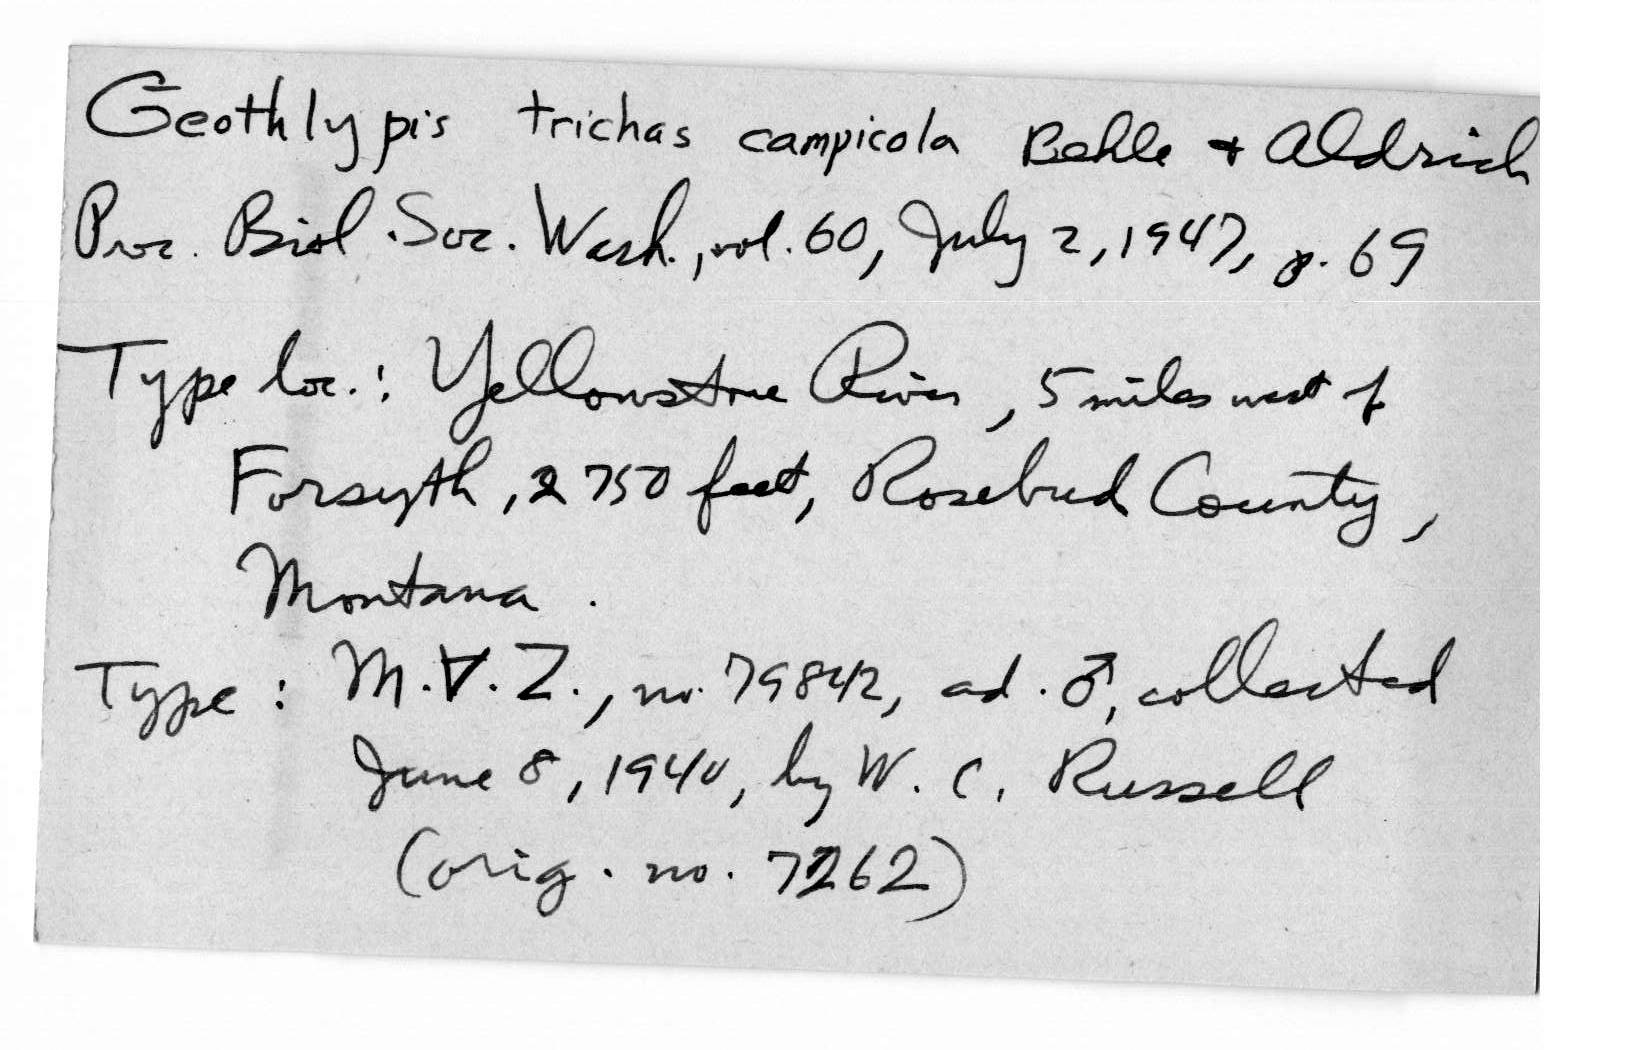 Geothlypis trichas campicola Behle + Aldrich
Proc. Biol. Soc. Wash., vol. 60, July 2, 1947, p. 69
Type loc.: Yellowstone River, 5 miles west of
Forsyth, 2750 feet, Rosebud County,
Montana.
Type: M.V.Z., no. 79842, ad. ♂, collected
June 8, 1940, by W. C. Russell
(orig. no. 7262)